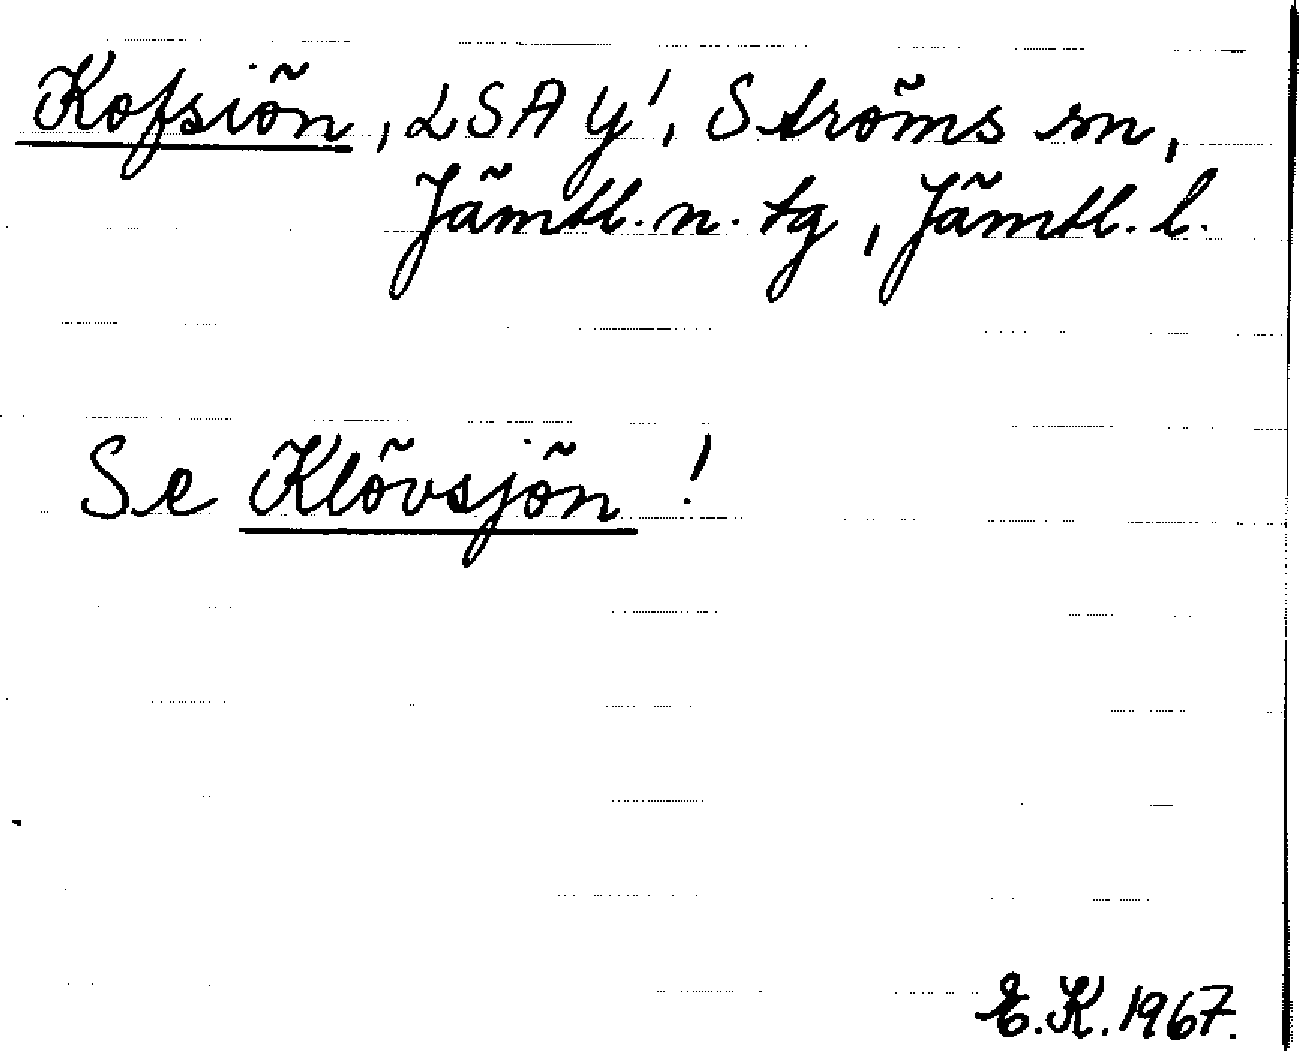 Kofsiön, LSA y¹, Ströms sn,
Jämtl. n. tg, Jämtl. l.
Se Klövsjön !
E.K. 1967.